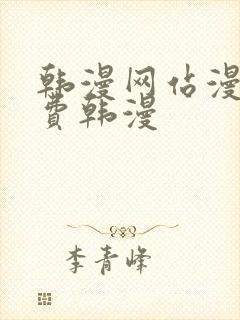 韩漫网佔漫
费韩漫
李青峰